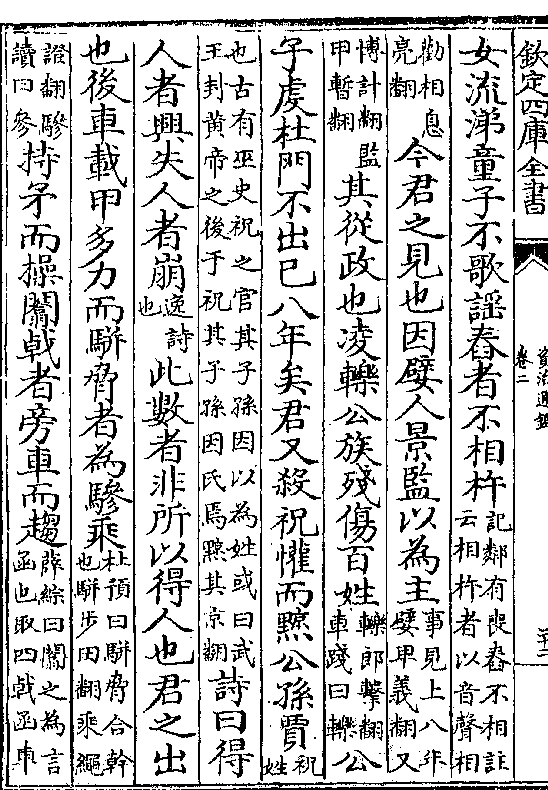 欽定四庫全書
資治通鑑
卷二
女流涕童子不歌謡舂者不相杵記鄰有喪舂不相註云相杵者以音聲相
勸相息亮翻今君之見也因嬖人景監以為主事見上八年嬖卑義翻又
博計翻監甲暫翻其從政也凌轢公族殘傷百姓轢郎擊翻車踐曰轢公
子䖍杜門不出已八年矣君又殺祝懽而黥公孫賈祝姓
也古有巫史祝之官其子孫因以為姓或曰武王封黄帝之後于祝其子孫因氏焉黥其京翻詩曰得
人者興失人者崩逸詩也此數者非所以得人也君之出
也後車載甲多力而駢脅者為驂乘杜預曰駢脅合幹也駢步田翻乘繩
證翻驂讀曰參持矛而操闟戟者旁車而趨薛綜曰闟之為言函也取四戟函車